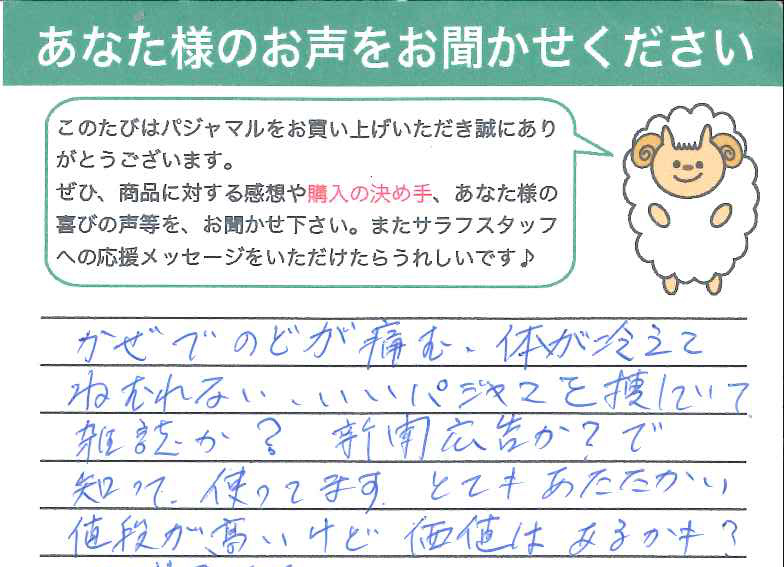 あなた様のお声をお聞かせください
このたびはパジャマルをお買い上げいただき誠にあり
がとうございます。
ぜひ、商品に対する感想や購入の決め手、あなた様の
喜びの声等を、お聞かせ下さい。またサラフスタッフ
への応援メッセージをいただけたらうれしいです♪
かぜでのどが痛む、体が冷えて
ねむれない、いいパジャマを捜していて
雑誌か? 新聞広告か?で
知って、使ってます とてもあたたかい
値段が高いけど 価値はあるかも?